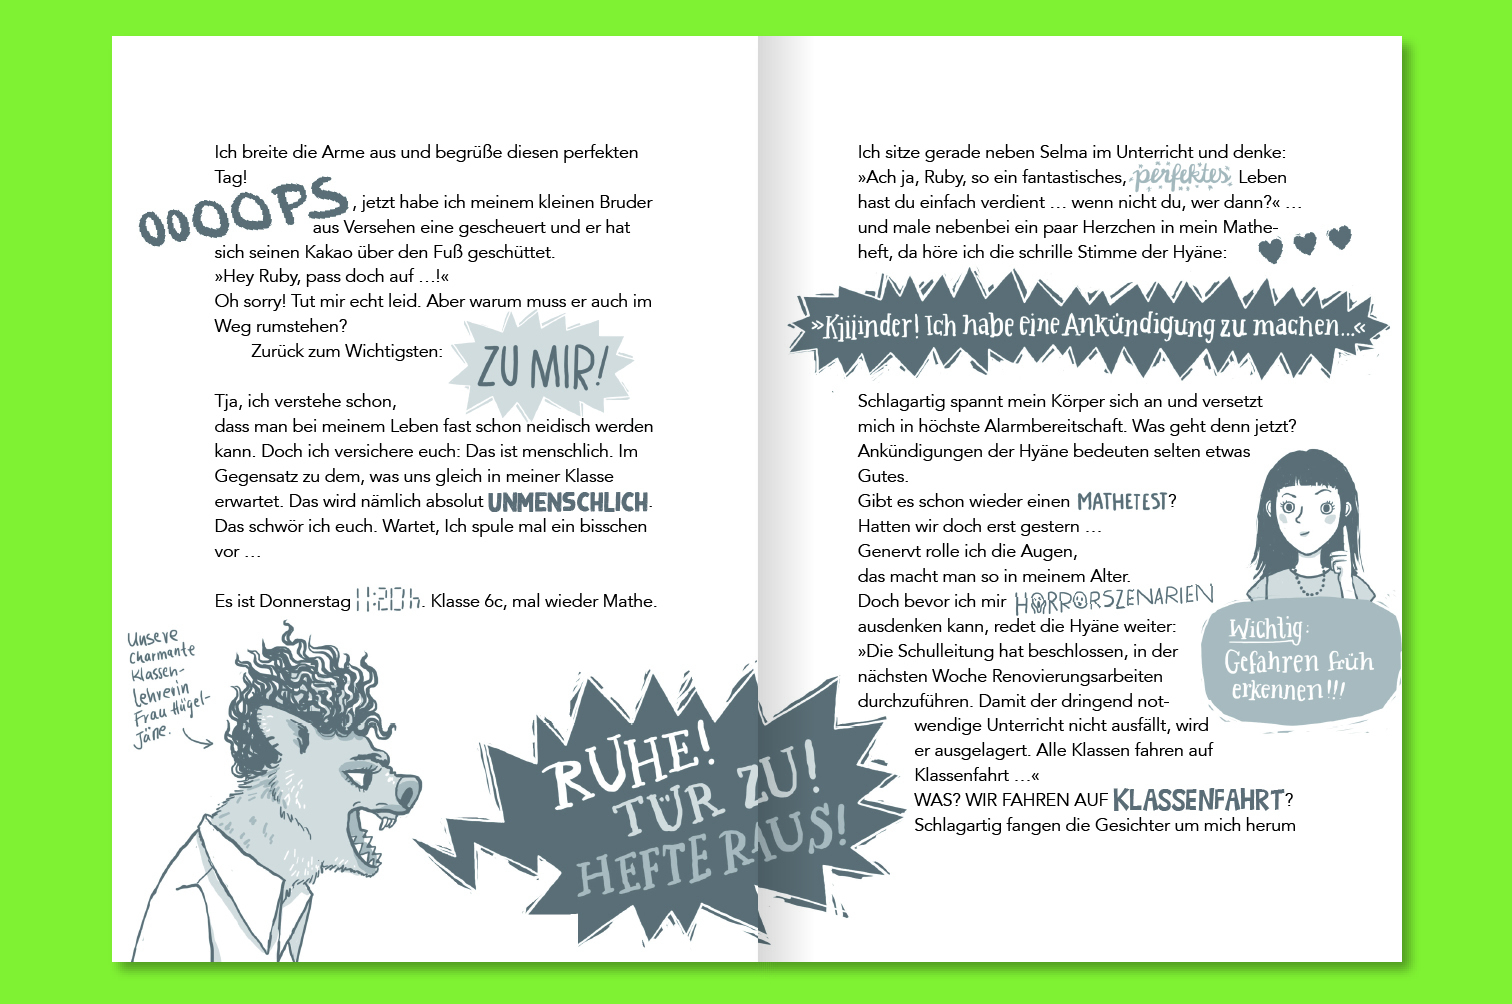 Ich breite die Arme aus und begrüße diesen perfekten
Tag!
OOOOPS, jetzt habe ich meinem kleinen Bruder
aus Versehen eine gescheuert und er hat
sich seinen Kakao über den Fuß geschüttet.
»Hey Ruby, pass doch auf …!«
Oh sorry! Tut mir echt leid. Aber warum muss er auch im
Weg rumstehen?
Zurück zum Wichtigsten:
ZU MIR!
Tja, ich verstehe schon,
dass man bei meinem Leben fast schon neidisch werden
kann. Doch ich versichere euch: Das ist menschlich. Im
Gegensatz zu dem, was uns gleich in meiner Klasse
erwartet. Das wird nämlich absolut UNMENSCHLICH.
Das schwör ich euch. Wartet, Ich spule mal ein bisschen
vor …
Es ist Donnerstag 11:20h. Klasse 6c, mal wieder Mathe.
Unsere
charmante
Klassen-
lehrerin
Frau Hügel-
Jäne.
RUHE!
TÜR ZU!
HEFTE RAUS!
Ich sitze gerade neben Selma im Unterricht und denke:
»Ach ja, Ruby, so ein fantastisches, perfektes Leben
hast du einfach verdient … wenn nicht du, wer dann?« …
und male nebenbei ein paar Herzchen in mein Mathe-
heft, da höre ich die schrille Stimme der Hyäne:
»Kiiiinder! Ich habe eine Ankündigung zu machen...«
Schlagartig spannt mein Körper sich an und versetzt
mich in höchste Alarmbereitschaft. Was geht denn jetzt?
Ankündigungen der Hyäne bedeuten selten etwas
Gutes.
Gibt es schon wieder einen MATHETEST?
Hatten wir doch erst gestern …
Genervt rolle ich die Augen,
das macht man so in meinem Alter.
Doch bevor ich mir HORRORSZENARIEN
ausdenken kann, redet die Hyäne weiter:
»Die Schulleitung hat beschlossen, in der
nächsten Woche Renovierungsarbeiten
durchzuführen. Damit der dringend not-
wendige Unterricht nicht ausfällt, wird
er ausgelagert. Alle Klassen fahren auf
Klassenfahrt …«
WAS? WIR FAHREN AUF KLASSENFAHRT?
Schlagartig fangen die Gesichter um mich herum
Wichtig:
Gefahren früh
erkennen!!!